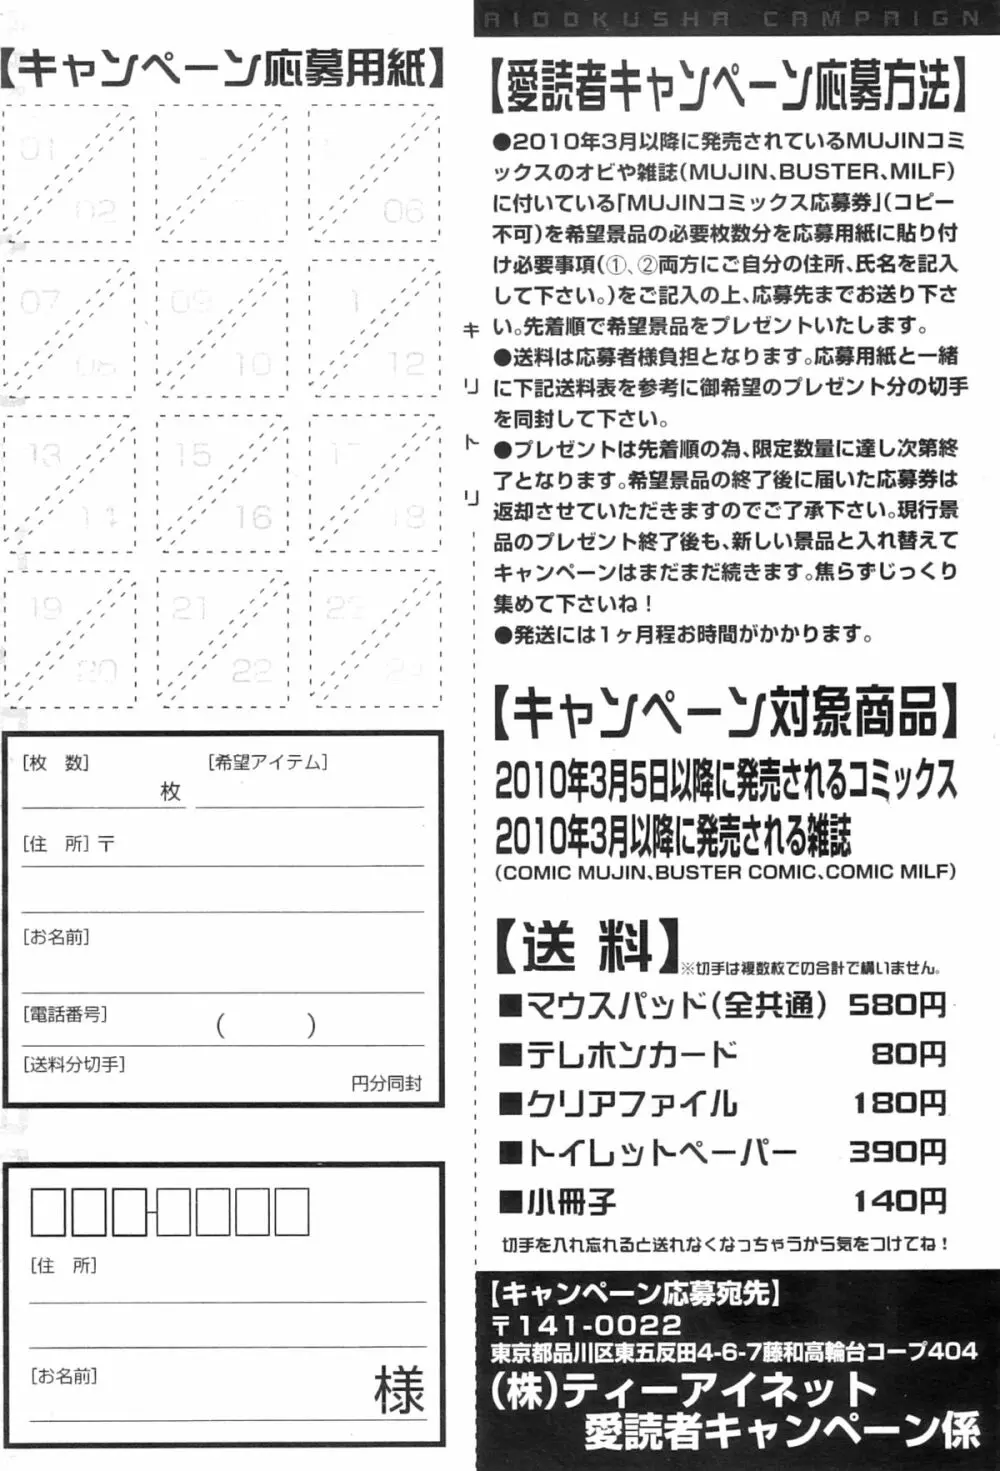 AIDOKUSHA CAMPAIGN
【愛読者キャンペーン応募方法】
●2010年3月以降に発売されているMUJINコミ
ックスのオビや雑誌(MUJIN、BUSTER、MILF)
に付いている「MUJINコミックス応募券」(コピー
不可)を希望景品の必要枚数分を応募用紙に貼り付
け必要事項(①、②両方にご自分の住所、氏名を記入
して下さい。)をご記入の上、応募先までお送り下さ
い。先着順で希望景品をプレゼントいたします。
●送料は応募者様負担となります。応募用紙と一緒
に下記送料表を参考に御希望のプレゼント分の切手
を同封して下さい。
●プレゼントは先着順の為、限定数量に達し次第終
了となります。希望景品の終了後に届いた応募券は
返却させていただきますのでご了承下さい。現行景
品のプレゼント終了後も、新しい景品と入れ替えて
キャンペーンはまだまだ続きます。焦らずじっくり
集めて下さいね！
●発送には1ヶ月程お時間がかかります。
【キャンペーン対象商品】
2010年3月5日以降に発売されるコミックス
2010年3月以降に発売される雑誌
(COMIC MUJIN、BUSTER COMIC、COMIC MILF)
【送 料】
※切手は複数枚での合計で構いません。
■マウスパッド(全共通) 580円
■テレホンカード 80円
■クリアファイル 180円
■トイレットペーパー 390円
■小冊子 140円
切手を入れ忘れると送れなくなっちゃうから気をつけてね！
【キャンペーン応募宛先】
〒141-0022
東京都品川区東五反田4-6-7藤和高輪台コープ404
(株)ティーアイネット
愛読者キャンペーン係
キリトリ
【キャンペーン応募用紙】
01
02
06
07
08
09
10
12
13
14
15
16
18
19
20
21
22
23
24
[枚 数]
枚
[希望アイテム]
[住 所]〒
[お名前]
[電話番号]
( )
[送料分切手]
円分同封
[住 所]
[お名前]
様